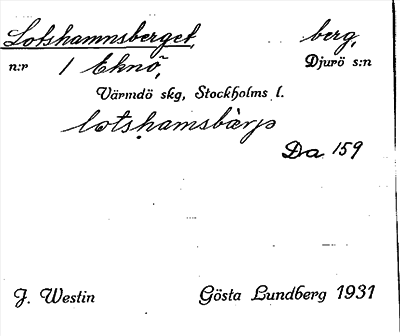 Lotshamnsberget, berg,
n:r 1 Eknö, Djurö s:n
Värmdö skg, Stockholms l.
lotshamsbàrjo
Da 159
J. Westin Gösta Lundberg 1931